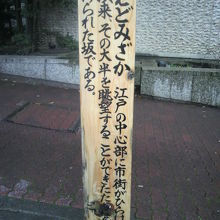 えどみざか
江戸の中心部に市街がひら
来、その大半を眺望することができたた
られた坂である。